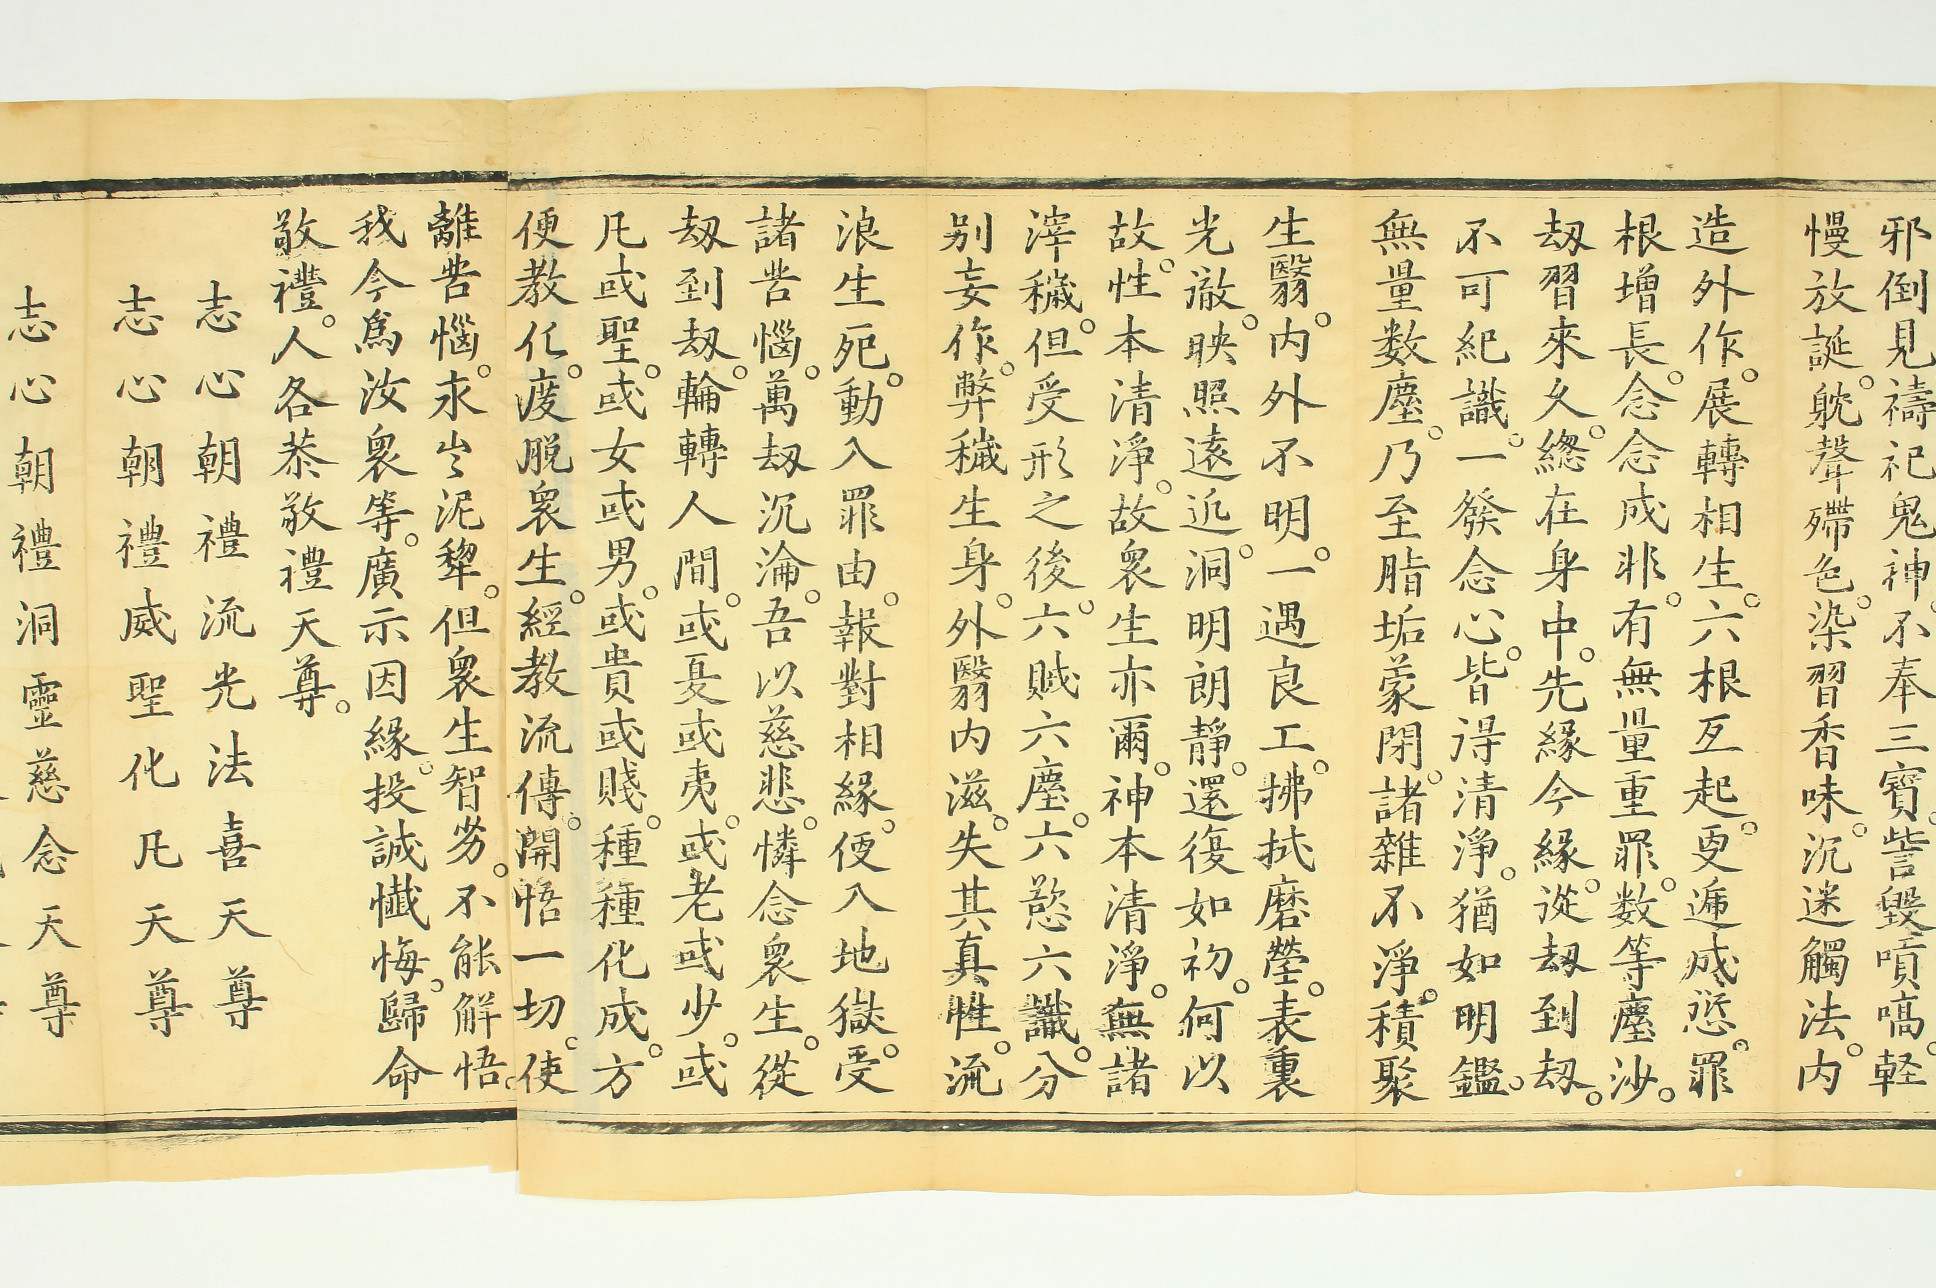 邪倒見禱祀鬼神。不奉三寶。訾毀嗔嗃。輕
慢放誕。躭聲殢色。染習香味。沉迷觸法。內
造外作。展轉相生。六根互起。更遞成愆。罪
根增長。念念成非。有無量重罪。数等塵沙。
刼習來久。緫在身中。先緣今緣。從刼到刼。
不可紀識。一發念心。皆得清淨。猶如明鑑。
無量数塵。乃至脂垢蒙閉。諸雜不淨。積聚
生翳。內外不明。一遇良工。拂拭磨瑩。表裏
光澈。映照遠近。洞明朗靜。還復如初。何以
故。性本清淨。故衆生亦爾。神本清淨。無諸
滓穢。但受形之後。六賊六塵。六慾六識。分
别妄作。弊穢生身。外翳内滋。失其真性。流
浪生死。動入罪由。報對相緣。便入地獄。受
諸苦惱。萬刼沉淪。吾以慈悲。憐念衆生。從
刼到刼。輪轉人間。或憂或夷。或老或少。或
凡或聖。或女或男。或貴或賤。種種化成。方
便教化。度脱衆生。經教流傳。開悟一切。使
離苦惱。永出泥犂。但衆生智劣。不能解悟。
我今爲汝衆等。廣示因緣。投誠懴悔。歸命
敬禮。人各恭敬禮天尊。
志心朝禮流光法喜天尊
志心朝禮威聖化凡天尊
志心朝禮洞靈慈念天尊